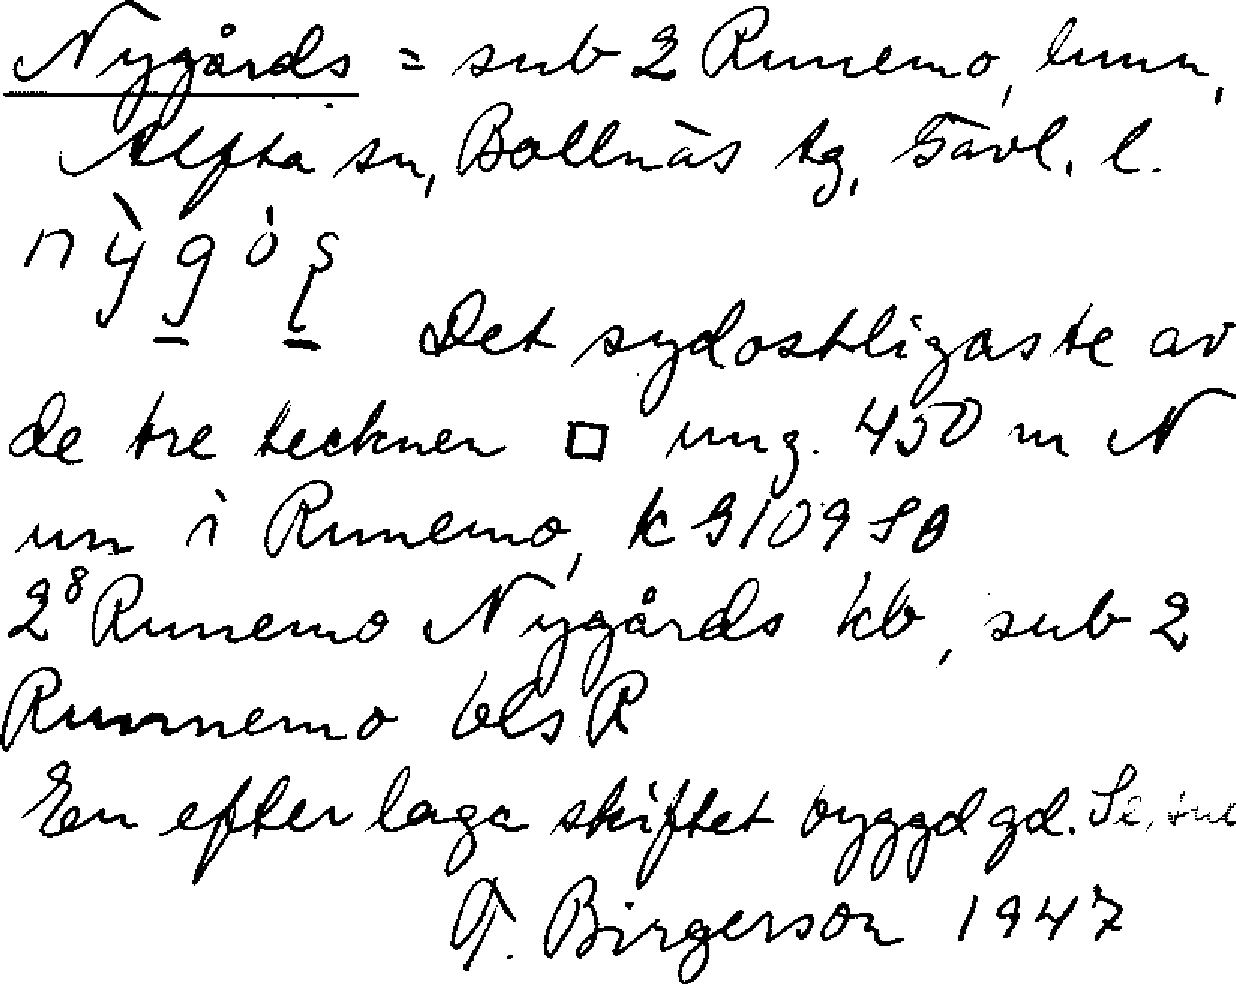 Nygårds = sub 2 Runemo,
Alfta sn, Bollnäs tg, Gävl. l.
nỳgọ́ṣ
Det sydostligaste av
de tre tecknen □ ung. 450 m N
um i Runemo, k 9109 SO
2⁸ Runemo Nygårds kb, sub 2
Runnemo bls R
En efter laga skiftet byggd gd. Se
T. Birgerson 1947